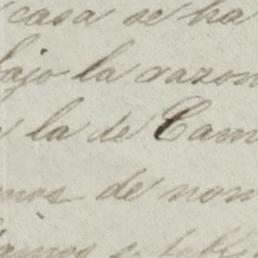 casa se ha
bajo la razon
la de Cam
mos de nom